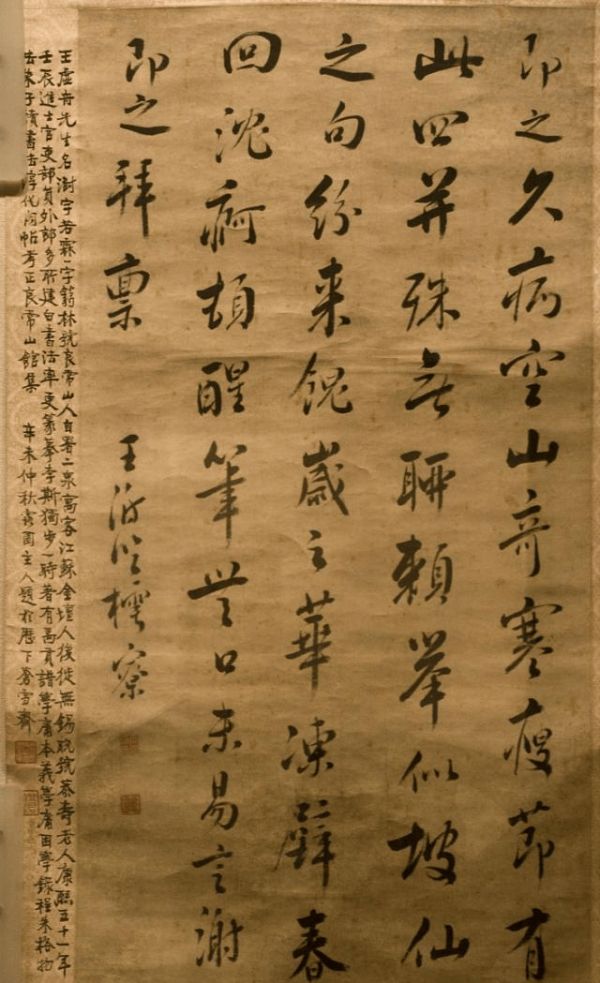 即之久病空山奇寒瘦節有
此四并殊無聊賴举似坡仙
之句紛来餽歲之華凍壁春
回沈疴頓醒筆與口未易言謝
即之拜禀
王澍临樗寮
王虚舟先生名澍字若霖一字蒻林號良常山人自署二泉寓客江蘇金壇人後徙無錫晚號恭壽老人康熙五十一年
壬辰進士官吏部員外郎多所建白書法率更篆摹李斯獨步一時著有禹貢譜學庸本義學庸困學錄程朱格物
法朱子讀書法淳化閣帖考正良常山館集 辛未仲秋主人題於歷下蒼雪齋